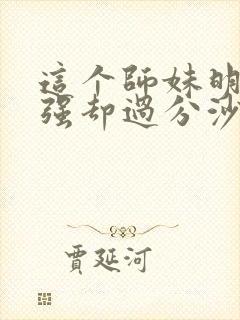 這个師妹明
强却過分沙
賈延河